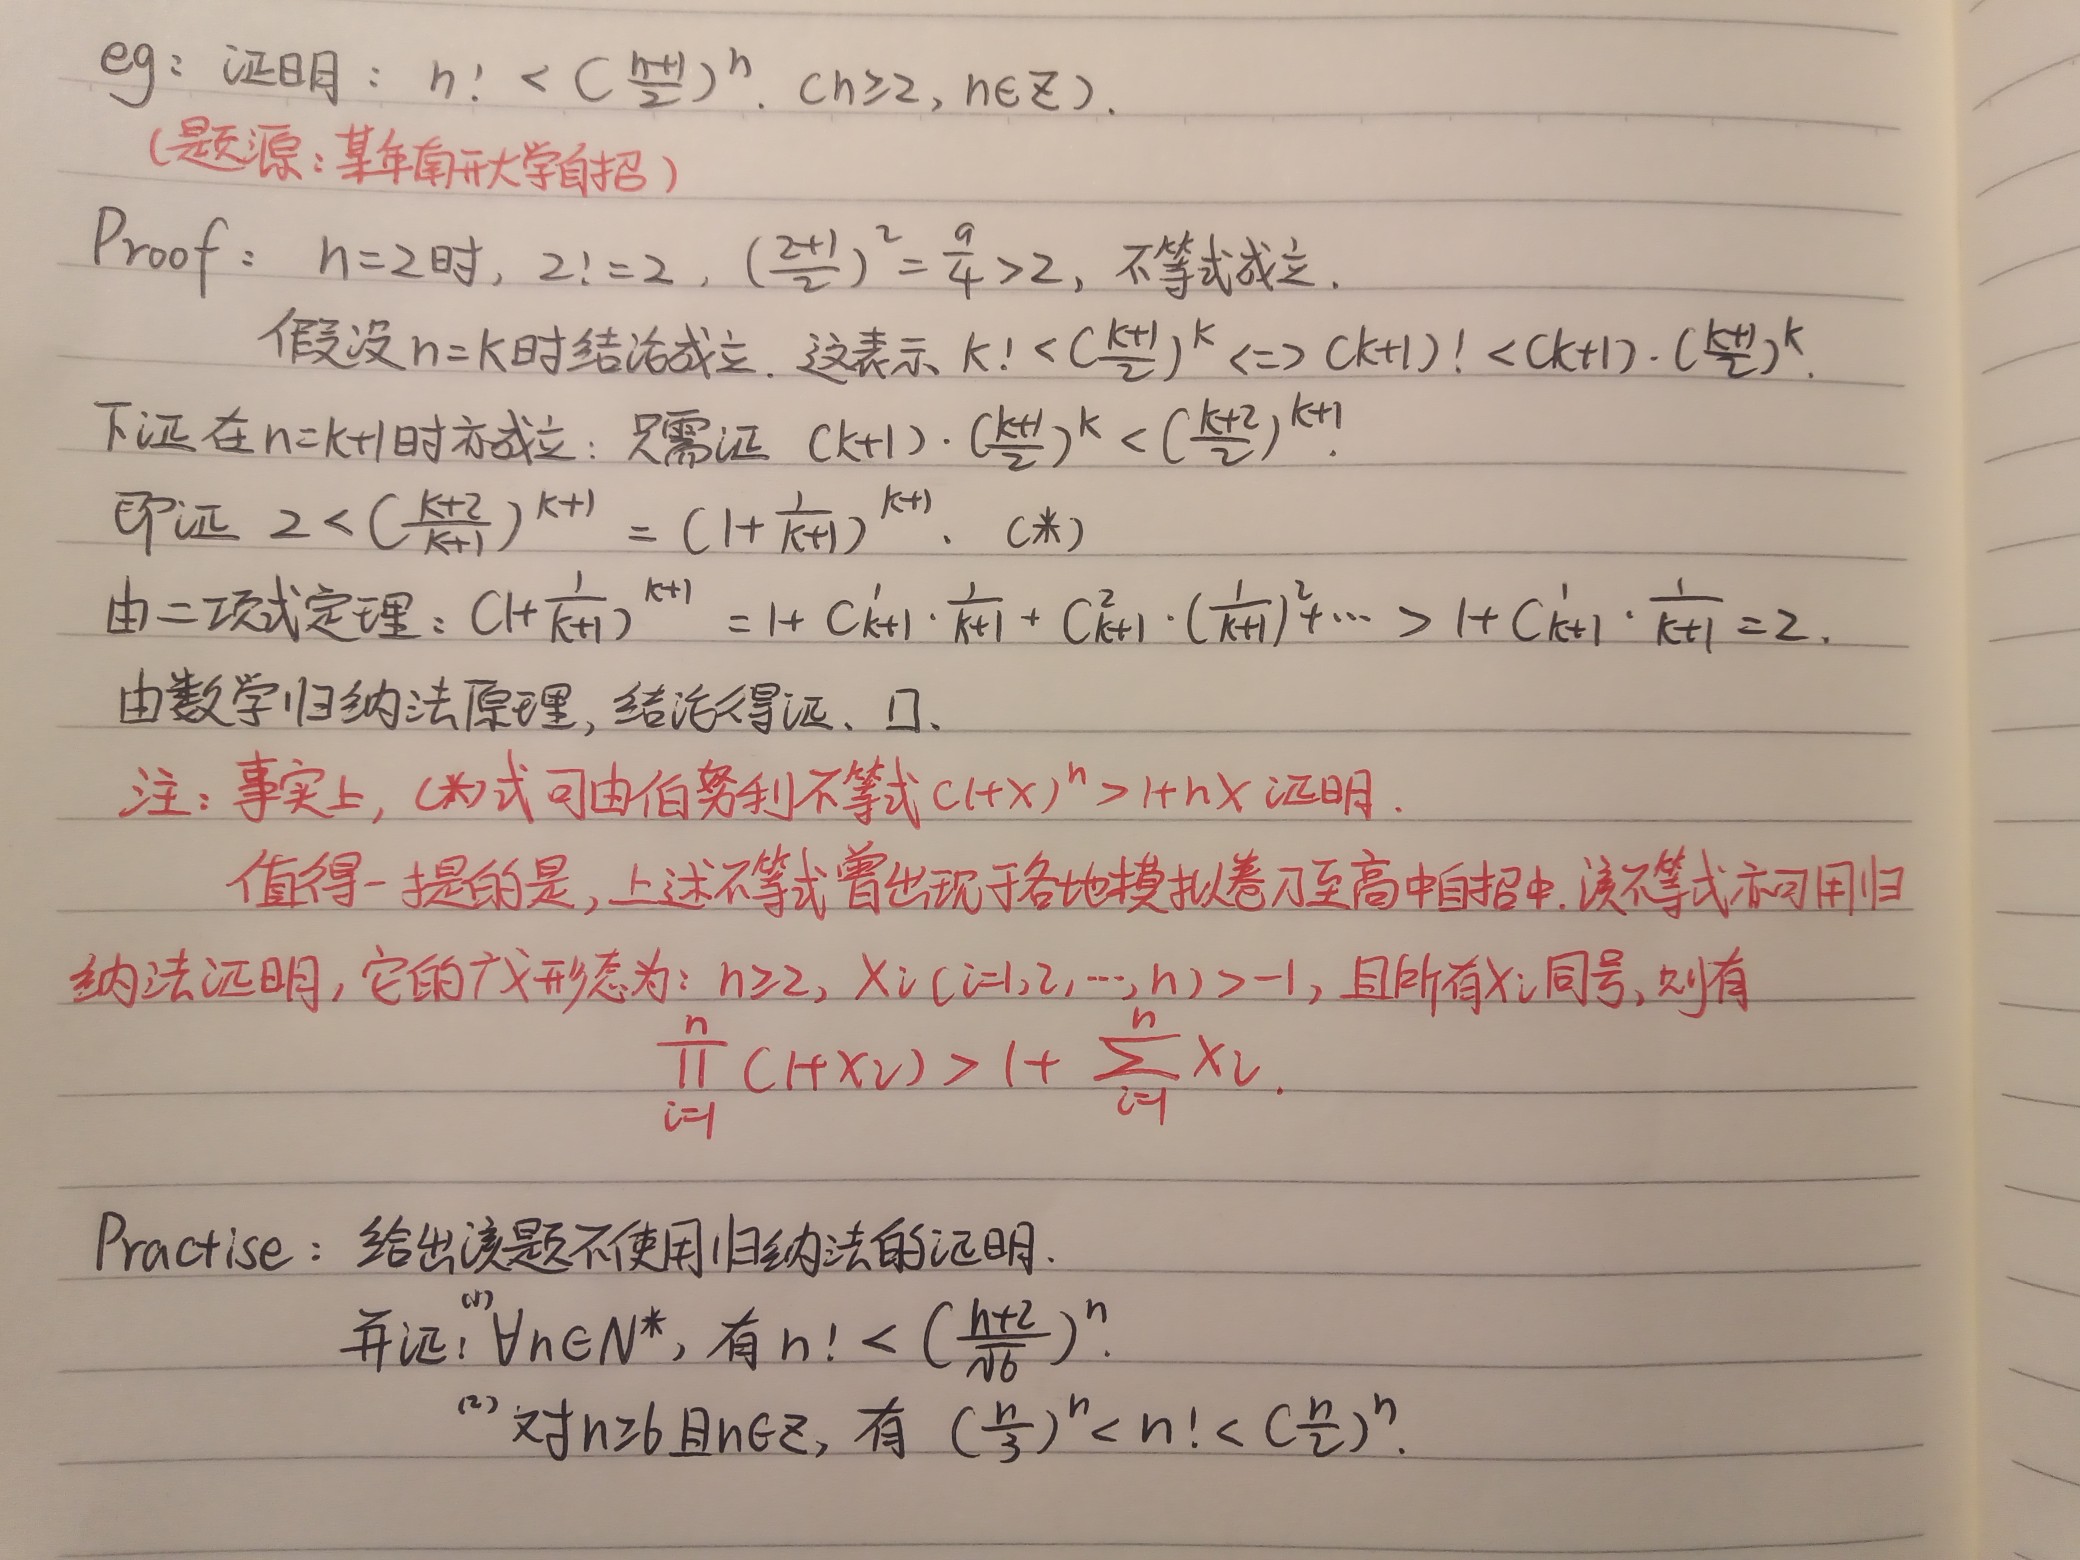 eg: 证明: n! < (\frac{n+1}{2})^n. (n≥2, n∈Z).
(题源:某年南开大学自招)
Proof: n=2时, 2!=2, (\frac{2+1}{2})^2 = \frac{9}{4} > 2, 不等式成立.
假设n=k时结论成立. 这表示 k! < (\frac{k+1}{2})^k <=> (k+1)! < (k+1)·(\frac{k+1}{2})^k.
下证在n=k+1时亦成立: 只需证 (k+1)·(\frac{k+1}{2})^k < (\frac{k+2}{2})^{k+1}.
即证 2 < (\frac{k+2}{k+1})^{k+1} = (1+\frac{1}{k+1})^{k+1}. (*)
由二项式定理: (1+\frac{1}{k+1})^{k+1} = 1+C_{k+1}^1·\frac{1}{k+1} + C_{k+1}^2·(\frac{1}{k+1})^2+··· > 1+C_{k+1}^1·\frac{1}{k+1} = 2.
由数学归纳法原理, 结论得证. □.
注: 事实上, (*)式可由伯努利不等式(1+x)^n > 1+nx 证明.
值得一提的是, 上述不等式曾出现于各地模拟卷乃至高中自招中. 该不等式亦可用归
纳法证明, 它的广义形态为: n≥2, x_i (i=1,2,···,n) > -1, 且所有x_i同号, 则有
\prod_{i=1}^{n} (1+x_i) > 1+ \sum_{i=1}^{n} x_i.
Practise: 给出该题不使用归纳法的证明.
并证: (1) ∀n∈N*, 有 n! < (\frac{n+2}{\sqrt{6}})^n.
(2) 对n≥6且n∈Z, 有 (\frac{n}{3})^n < n! < (\frac{n}{2})^n.